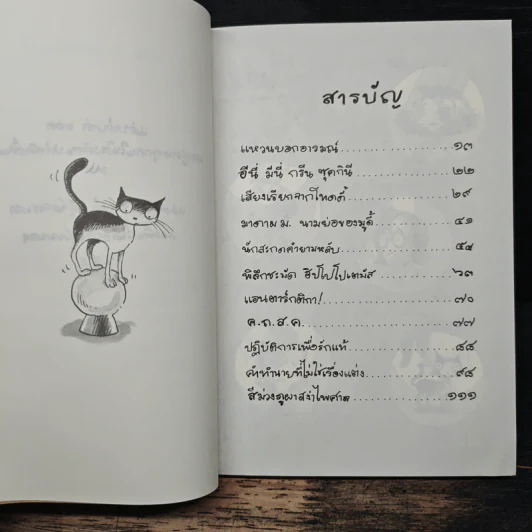 สารบัญ
แหวนบอกอารมณ์ ................ ๑๓
อีนี่ มีนี่ กรีน ซุคกินี ................ ๒๒
เสียงเรียกจากโทดดี้ ................ ๒๙
มาดาม ม. นามย่อของมูดี้ ................ ๔๑
นักสะกดคำยามหลับ ................ ๕๔
พิลึกชะมัด ฮิปโปโปเตมัส ................ ๖๓
แอนตาร์กติกา! ................ ๗๐
ค.ถ.ส.ค. ................ ๗๗
ปฏิบัติการเพื่อรักแท้ ................ ๘๘
คำทำนายที่ไม่ใช่เรื่องแต่ง ................ ๙๘
สีม่วงดูผาสง่าไพศาล ................ ๑๑๑